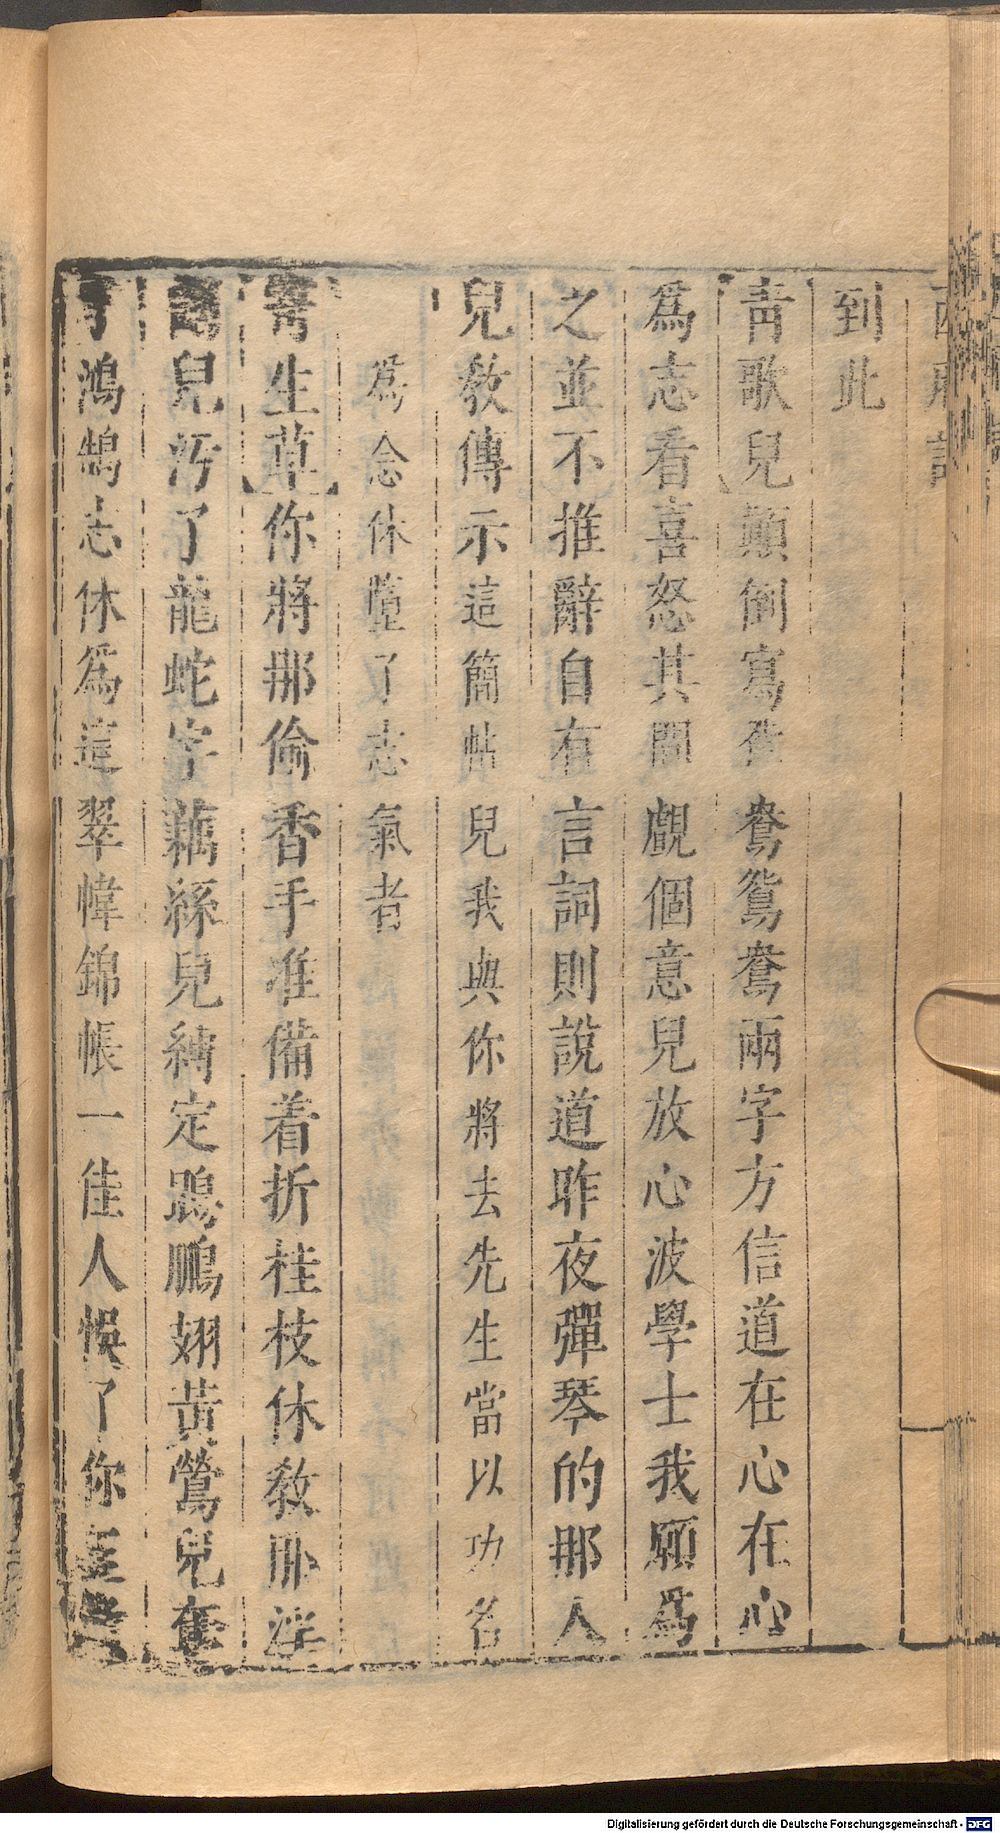 西廂記
到此
青歌兒顛倒寫鴛鴦鴛鴦兩字方信道在心在心
爲志看喜怒其間覷個意兒放心波學士我願爲
之並不推辭自有言詞則說道昨夜彈琴的那人
兒教傳示這簡帖兒我與你將去先生當以功名
爲念休墮了志氣者
寄生草你將那偷香手准備着折桂枝休教那淫
詞兒汚了龍蛇字藕絲兒縛定鵾鵬翅黃鶯兒奪
了鴻鵠志休爲這翠幃錦帳一佳人悞了你玉堂
Digitalisierung gefördert durch die Deutsche Forschungsgemeinschaft - DFG